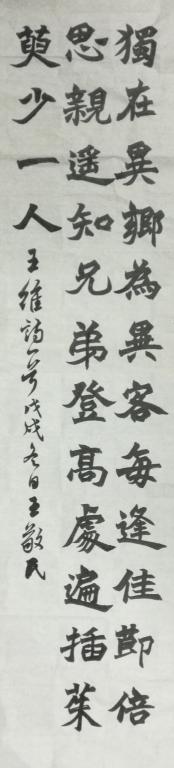 獨在異鄉為異客每逢佳節倍
思親遥知兄弟登高處遍插茱
萸少一人
王維詩一首戊戌冬日王敬民